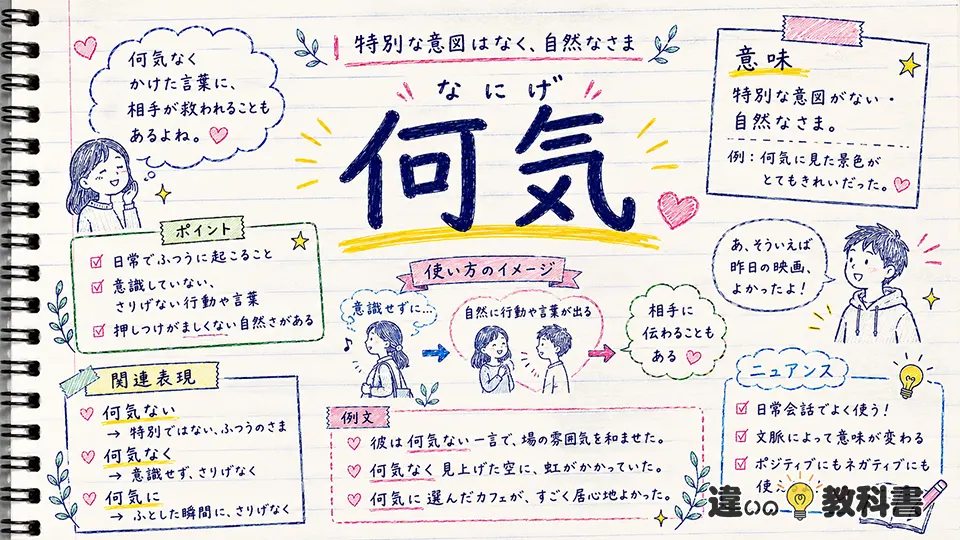 何気なく
かけた言葉に、
相手が救われることも
あるよね。
特別な意図はなく、自然なさま
なにげ
何気
意味
特別な意図がない・
自然なさま。
例：何気に見た景色が
とてもきれいだった。
ポイント
日常でふつうに起こること
意識していない、
さりげない行動や言葉
押しつけがましくない自然さがある
使い方のイメージ
意識せずに…
自然に行動や言葉が出る
相手に
伝わることも
ある
あ、そういえば
昨日の映画、
よかったよ！
関連表現
何気ない
→ 特別ではない、ふつうのさま
何気なく
→ 意識せず、さりげなく
何気に
→ ふとした瞬間に、さりげなく
例文
彼は何気ない一言で、場の雰囲気を和ませた。
何気なく見上げた空に、虹がかかっていた。
何気に選んだカフェが、すごく居心地よかった。
ニュアンス
日常会話でよく使う！
文脈によって意味が変わる
ポジティブにもネガティブにも
使
違いの教科書